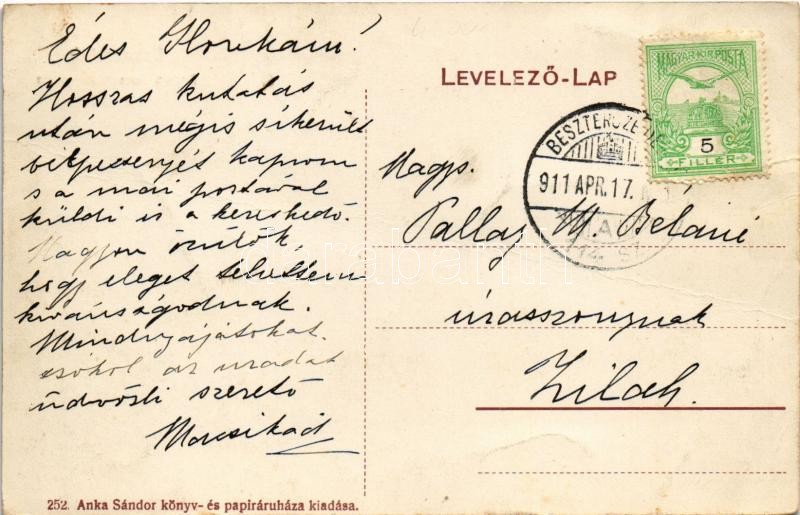 Édes Ilonkám!
Hosszas kutatás
után mégis sikerült
kapnom
s a mai postával
küldi is a kereskedő.
Nagyon örülök,
hogy eleget tehettem
kivánságodnak.
Mindnyájatokat
csókol az uradat
üdvözli szerető
Marcsikád
252. Anka Sándor könyv- és papiráruháza kiadása.
LEVELEZŐ-LAP
MAGYAR KIR. POSTA
5
FILLÉR
BESZTERCZE
911 APR. 17.
Nagys.
Pallay M. Beláné
úrasszonynak
Zilah.
darabanth